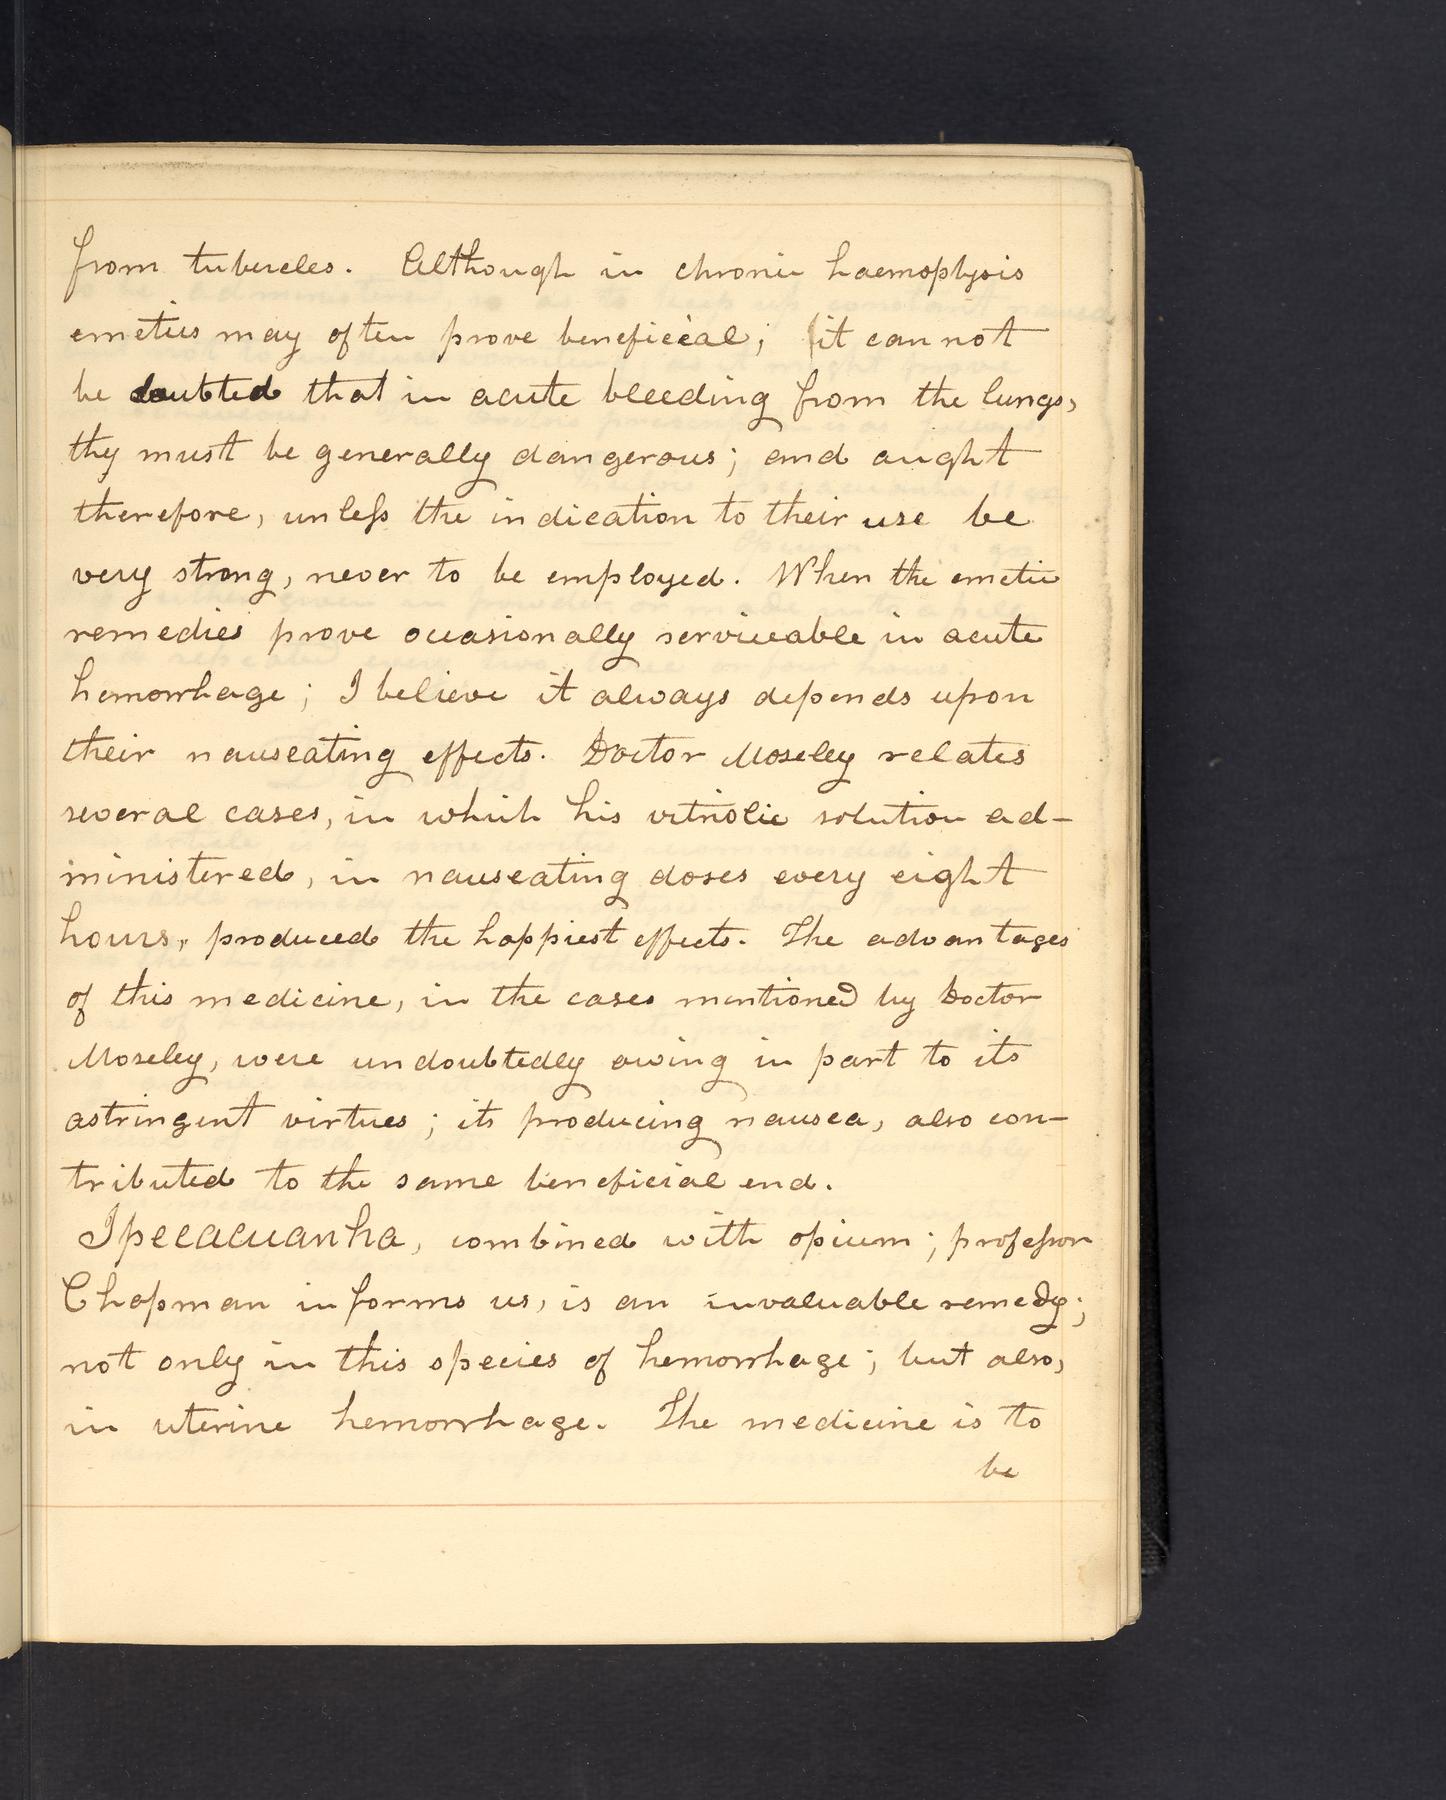 from tubercles. Although in chronic haemoptysis
emetics may often prove beneficial; it can not
be doubted that in acute bleeding from the lungs,
thy must be generally dangerous; and aught
therefore, unless the indication to their use be
very strong, never to be employed. When the emetic
remedies prove occasionally serviceable in acute
hemorrhage; I believe it always depends upon
their nauseating effects. Doctor Moseley relates
several cases, in which his vitriolic solution ad-
ministered, in nauseating doses every eight
hours, produced the happiest effects. The advantages
of this medicine, in the cases mentioned by Doctor
Moseley, were undoubtedly owing in part to its
astringent virtues; its producing nausea, also con-
tributed to the same beneficial end.
Ipecacuanha, combined with opium; professor
Chapman informs us, is an invaluable remedy;
not only in this species of hemorrhage; but also,
in uterine hemorrhage. The medicine is to
be